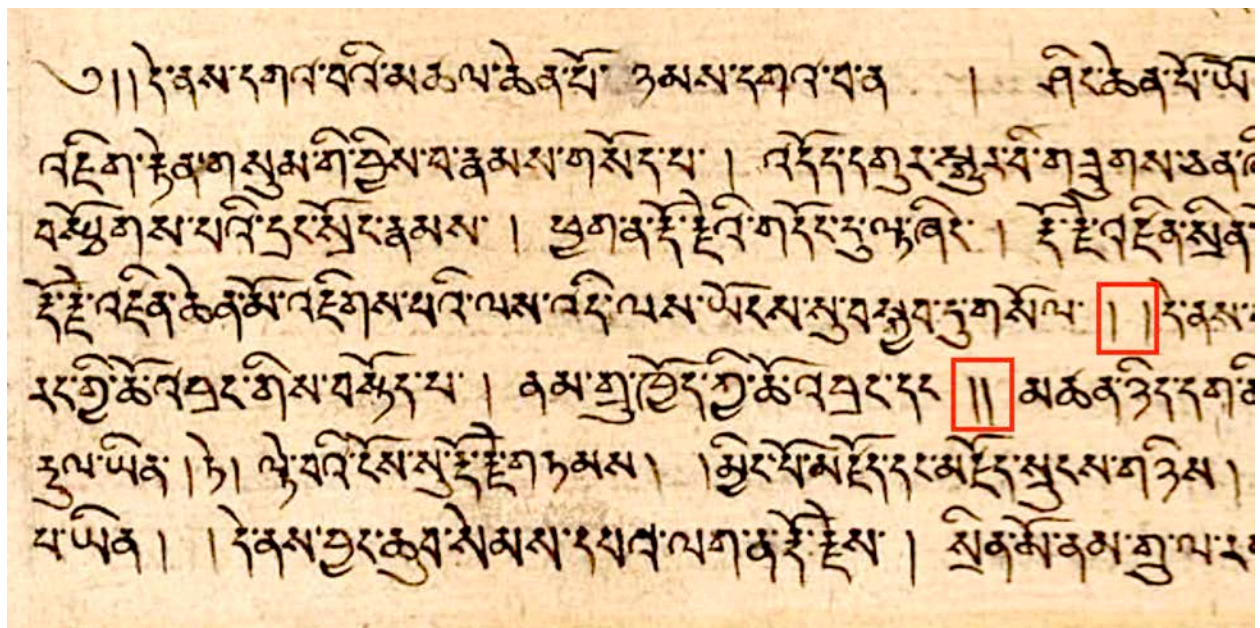 ༄༅།།དེ་ནས་དགའ་བའི་མཚལ་ཆེན་པོ་ ཉམས་དགའ་བ་ན ། ཤིང་ཆེན་པོ་ཡོ
འཇིག་རྟེན་གསུམ་གི་བྱིས་བ་རྣམས་གསོད་པ་ ། འདོད་དགུར་སྒྱུར་བི་གཟུགས་ཅན་
ཕྱོགས་པའི་དྲང་སྲོང་རྣམས་ ། ཕྱག་ན་རྡོ་རྗེའི་གདོང་དུ་ལྟ་ཞིང་ ། རྡོ་རྗེ་འཛིན་སྲིན་
རྡོ་རྗེ་འཛིན་ཆེན་མོ་འཇིགས་པའི་ལས་འདི་ལས་ཡོངས་སུ་བསྐྱབ་དུ་གསོལ་ ། །དེ་ནས་
རང་གྱི་ཚོ་འཕྲང་གིས་བསྟོད་པ་ ། ནམ་གྲུ་ཁྱོད་ཀྱི་ཚོ་འཕྲང་དང །། མཚན་ཉིད་དག་
རྡུལ་ཡིན་ །ཏེ། ལྟེ་བའི་ངོས་སུ་རྡོ་རྗེ་གཏམས། །མྱིང་པོ་མེ་དང་མ་སྲུངས་གཉིས།
པ་ཡིན། །དེ་ནས་བྱང་ཆུབ་སེམས་དཔའ་ལག་ན་རྡོ་རྗེས་ ། སྲིན་མོ་ནམ་གྲུ་ལ་